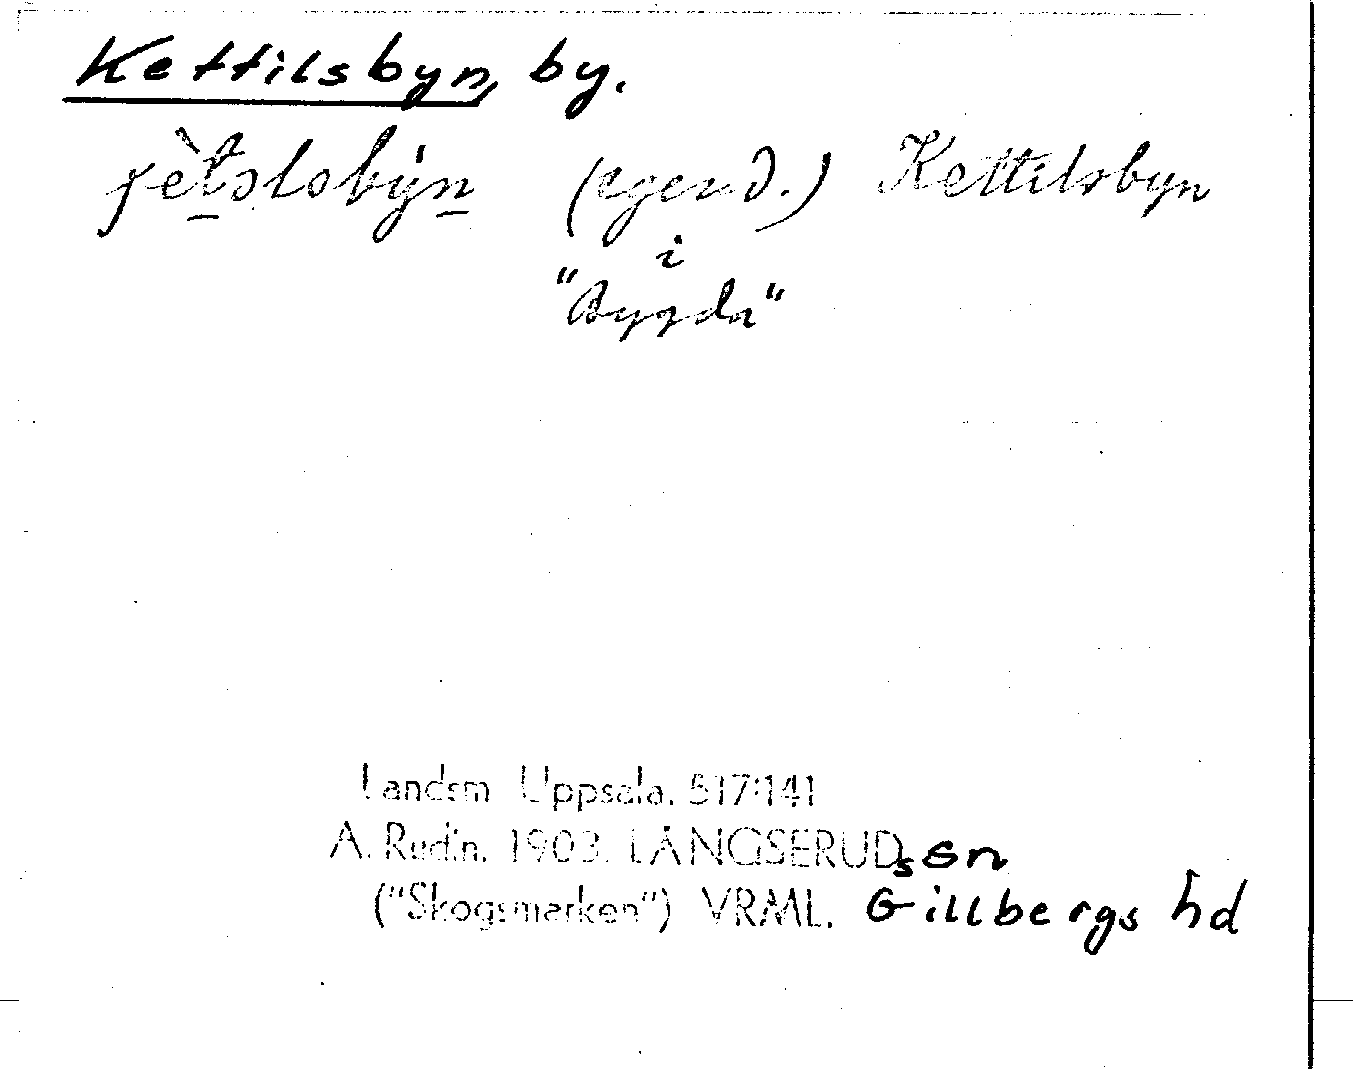 Kettilsbyn, by.
(egend.) Kettilsbyn
i
"Bygda"
Landsm Uppsala. 517:141
A. Redin. 1903. LÅNGSERUDs sn
("Skogsmarken") VRML. Gillbergs hd